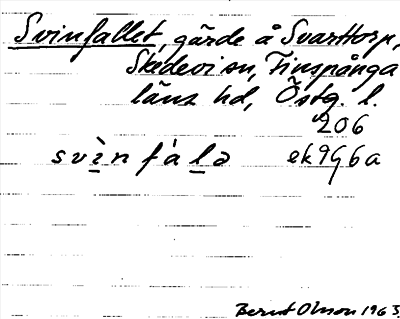 Svinfallet, gärde å Svarttorp,
Skedevi sn, Finspånga
läns hd, Östg. l.
206
svi̠̇n få l̠ə ek 996a
Bernt Olsson 1963.